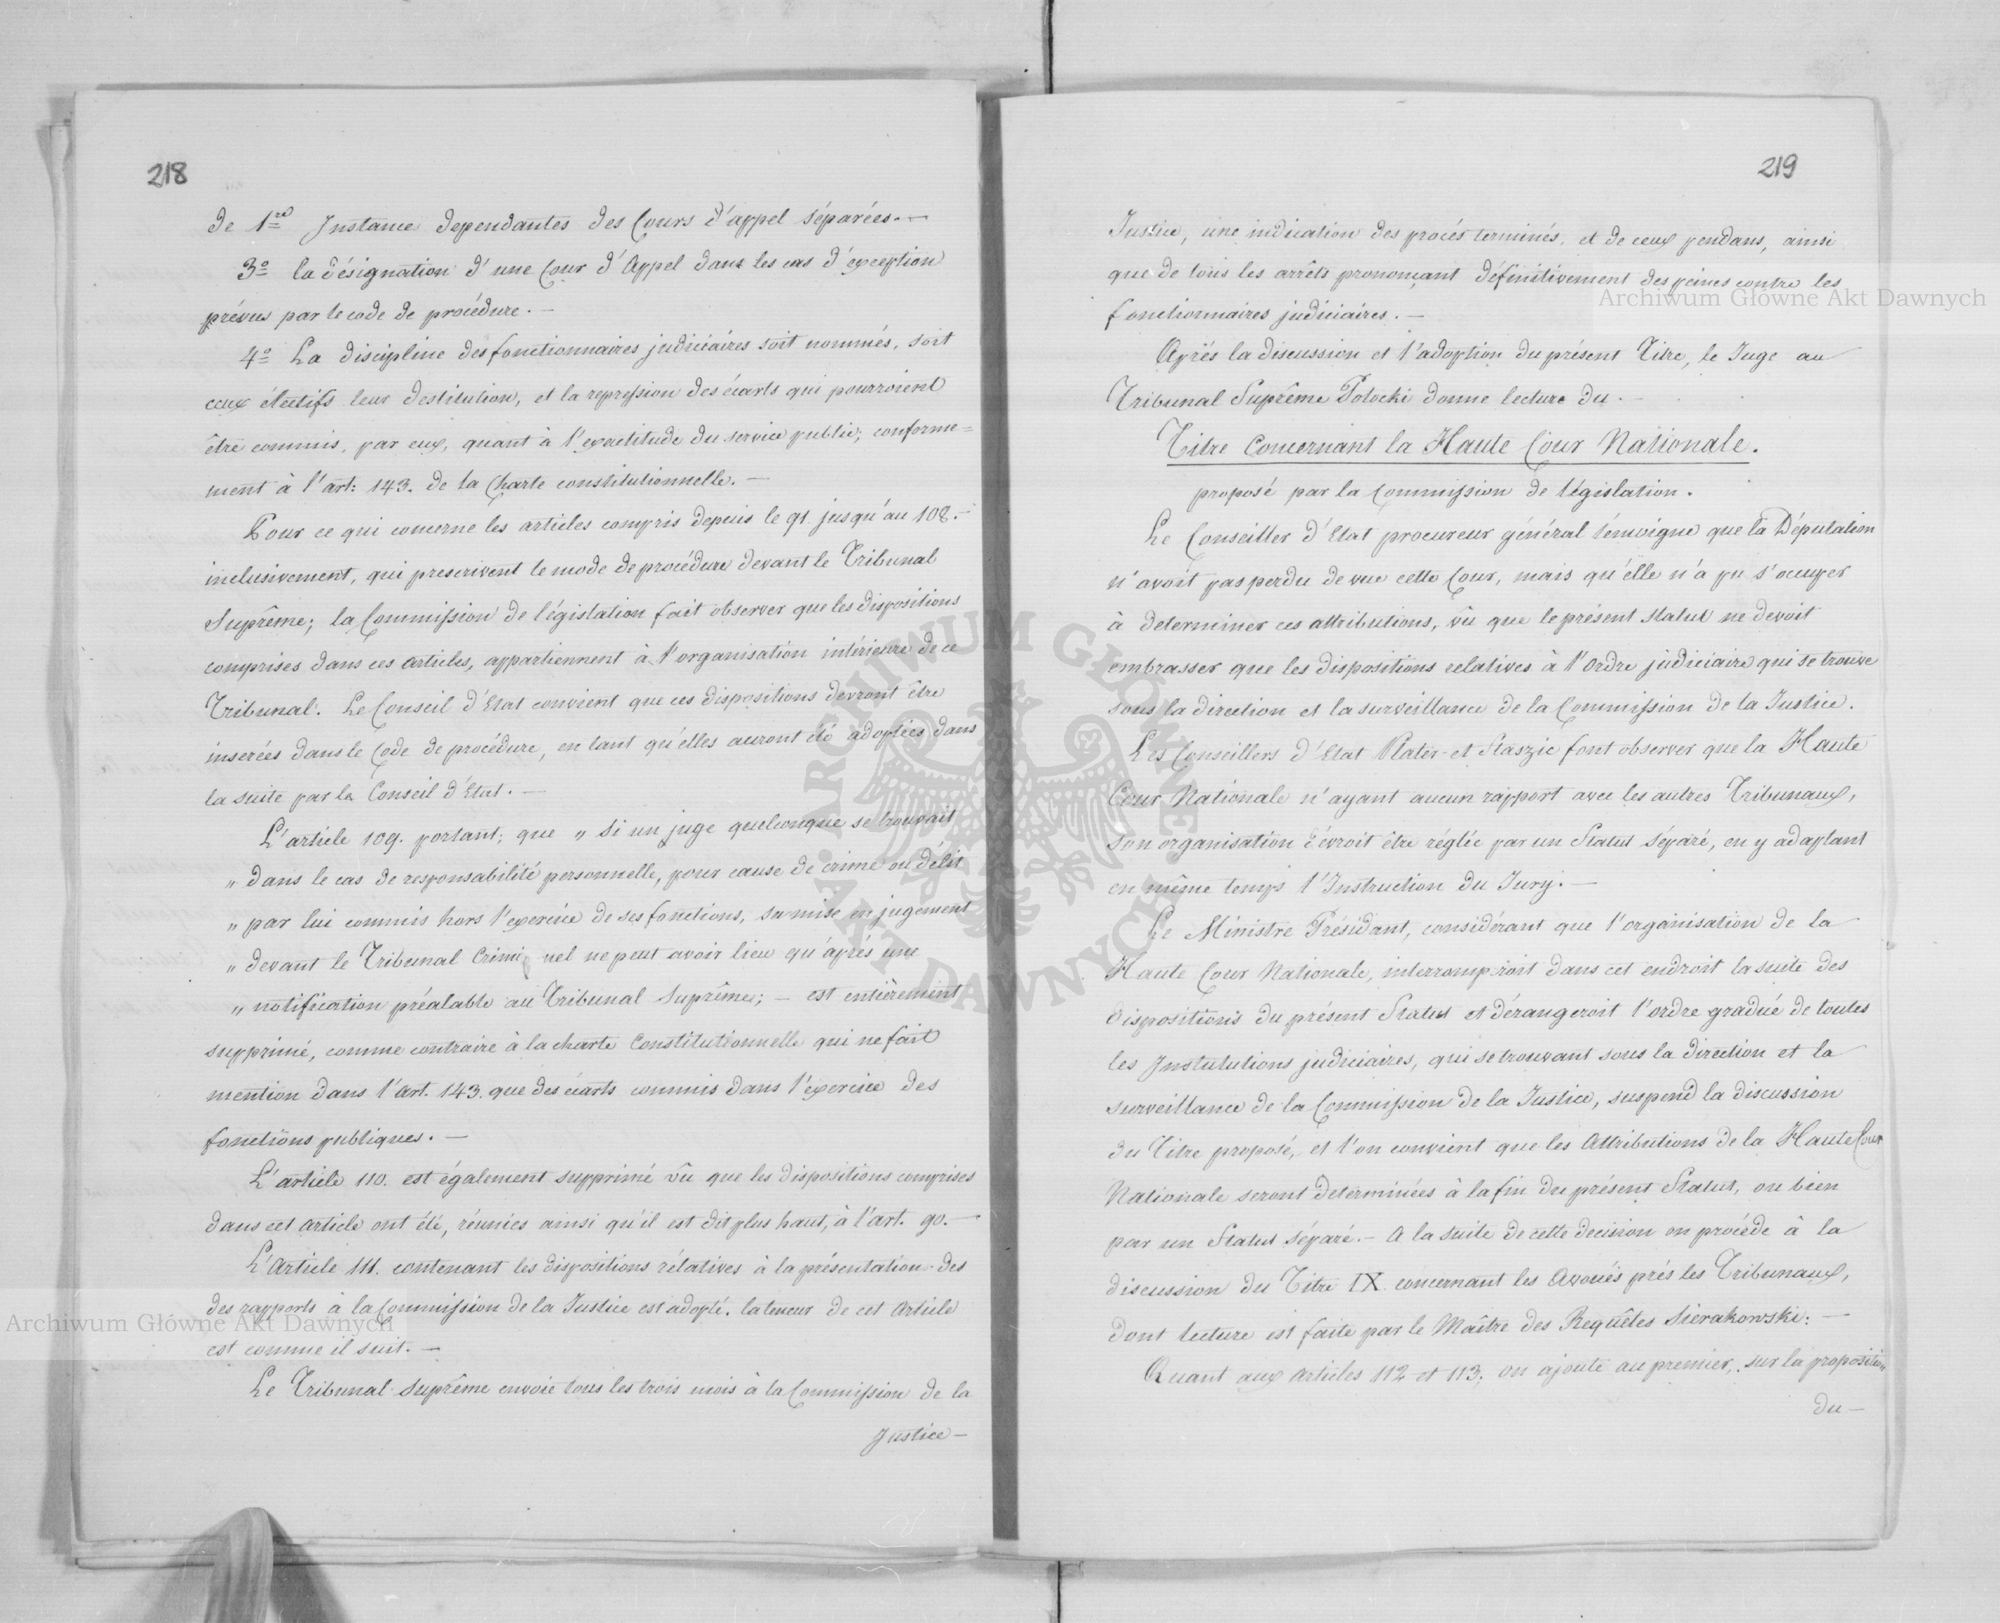 218
de 1re Instance dependantes des Cours d'appel séparées. —
3o la désignation d'une Cour d'Appel dans les cas d'éxception
prévus par le code de procédure. —
4o La discipline des fonctionnaires judiciaires soit nommés, soit
ceux électifs leur destitution, et la repression des écarts qui pourroient
être commis, par eux, quant à l'exactitude du service public; conforme=
ment à l'art: 143. de la Charte constitutionnelle. —
Pour ce qui concerne les articles compris depuis le 91 jusqu'au 108. —
inclusivement, qui prescrivent le mode de procédure devant le Tribunal
Suprême; la Commission de législation fait observer que les dispositions
comprises dans ces articles, appartiennent à l'organisation intérieure de ce
Tribunal. Le Conseil d'Etat convient que ces dispositions devront être
inserées dans le Code de procédure, en tant qu'elles auront été adoptées dans
la suite par le Conseil d'Etat. —
L'article 109. portant; que „ Si un juge quelconque se trouvait
„ dans le cas de responsabilité personnelle, pour cause de crime ou délit
„ par lui commis hors l'exercice de ses fonctions, sa mise en jugement
„ devant le Tribunal Criminel ne peut avoir lieu qu'après une
„ notification préalable au Tribunal Suprême; — est entièrement
supprimé, comme contraire à la charte Constitutionnelle qui ne fait
mention dans l'art. 143. que des écarts commis dans l'exercice des
fonctions publiques. —
L'article 110. est également supprimé vû que les dispositions comprises
dans cet article ont été, réunies ainsi qu'il est dit plus haut, à l'art. 90. —
L'Article 111. contenant les dispositions rélatives à la présentation des
des rapports à la Commission de la Justice est adopté. la teneur de cet Article
est comme il suit. —
Le Tribunal Suprême envoie tous les trois mois à la Commission de la
Justice —
219
Justice, une indication des procès terminés, et de ceux pendans, ainsi
que de tous les arrêts prononçant définitivement des peines contre les
fonctionnaires judiciaires. —
Après la discussion et l'adoption du présent Titre, le Juge au
Tribunal Suprême Potocki donne lecture du. —
Titre Concernant la Haute Cour Nationale.
proposé par la Commission de législation.
Le Conseiller d'Etat procureur général témoigne que la Députation
n'avoit pas perdu de vue cette Cour, mais qu'elle n'a pu s'occuper
à determiner ces attributions, vû que le présent Statut ne devoit
embrasser que les dispositions relatives à l'Ordre judiciaire qui se trouve
sous la direction et la surveillance de la Commission de la Justice.
Les Conseillers d'Etat Plater et Staszic font observer que la Haute
Cour Nationale n'ayant aucun rapport avec les autres Tribunaux,
son organisation dévroit être réglée par un Statut séparé, en y adaptant
en même temps l'Instruction du Jury. —
Le Ministre Présidant, considérant que l'organisation de la
Haute Cour Nationale, interromproit dans cet endroit la suite des
dispositions du présent Statut et dérangeroit l'ordre gradué de toutes
les Instutulions judiciaires, qui se trouvant sous la direction et la
surveillance de la Commission de la Justice, suspend la discussion
du Titre proposé, et l'on convient que les Attributions de la Haute Cour
Nationale seront determinées à la fin du présent Statut, ou bien
par un Statut séparé. — A la suite de cette decision on procède à la
discussion du Titre IX concernant les Avoués près les Tribunaux,
dont lecture est faite par le Maître des Requêtes Sierakowski: —
Quant aux Articles 112 et 113; on ajoute au premier, sur la proposition
du —
Archiwum Główne Akt Dawnych
Archiwum Główne Akt Dawnych
ARCHIWUM GŁÓWNE AKT DAWNYCH